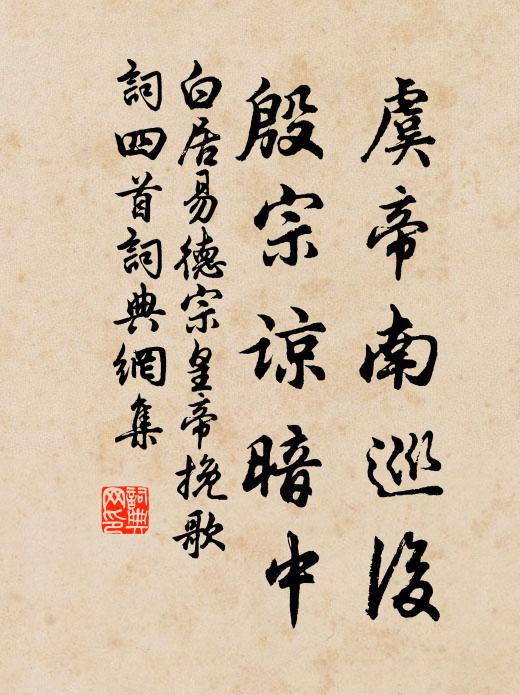 虞帝南巡後
殷宗諒暗中
白居易德宗皇帝挽歌
詞四首詞典網集
詞典
网印